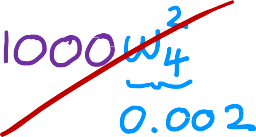 1000ω₄²
0.002